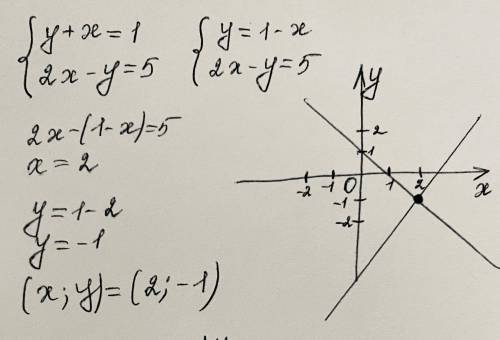 { y + x = 1
2x - y = 5
{ y = 1 - x
2x - y = 5
2x - (1 - x) = 5
x = 2
y = 1 - 2
y = -1
(x; y) = (2; -1)
y
2
1
-2 -1 O 1 2 x
-1
-2